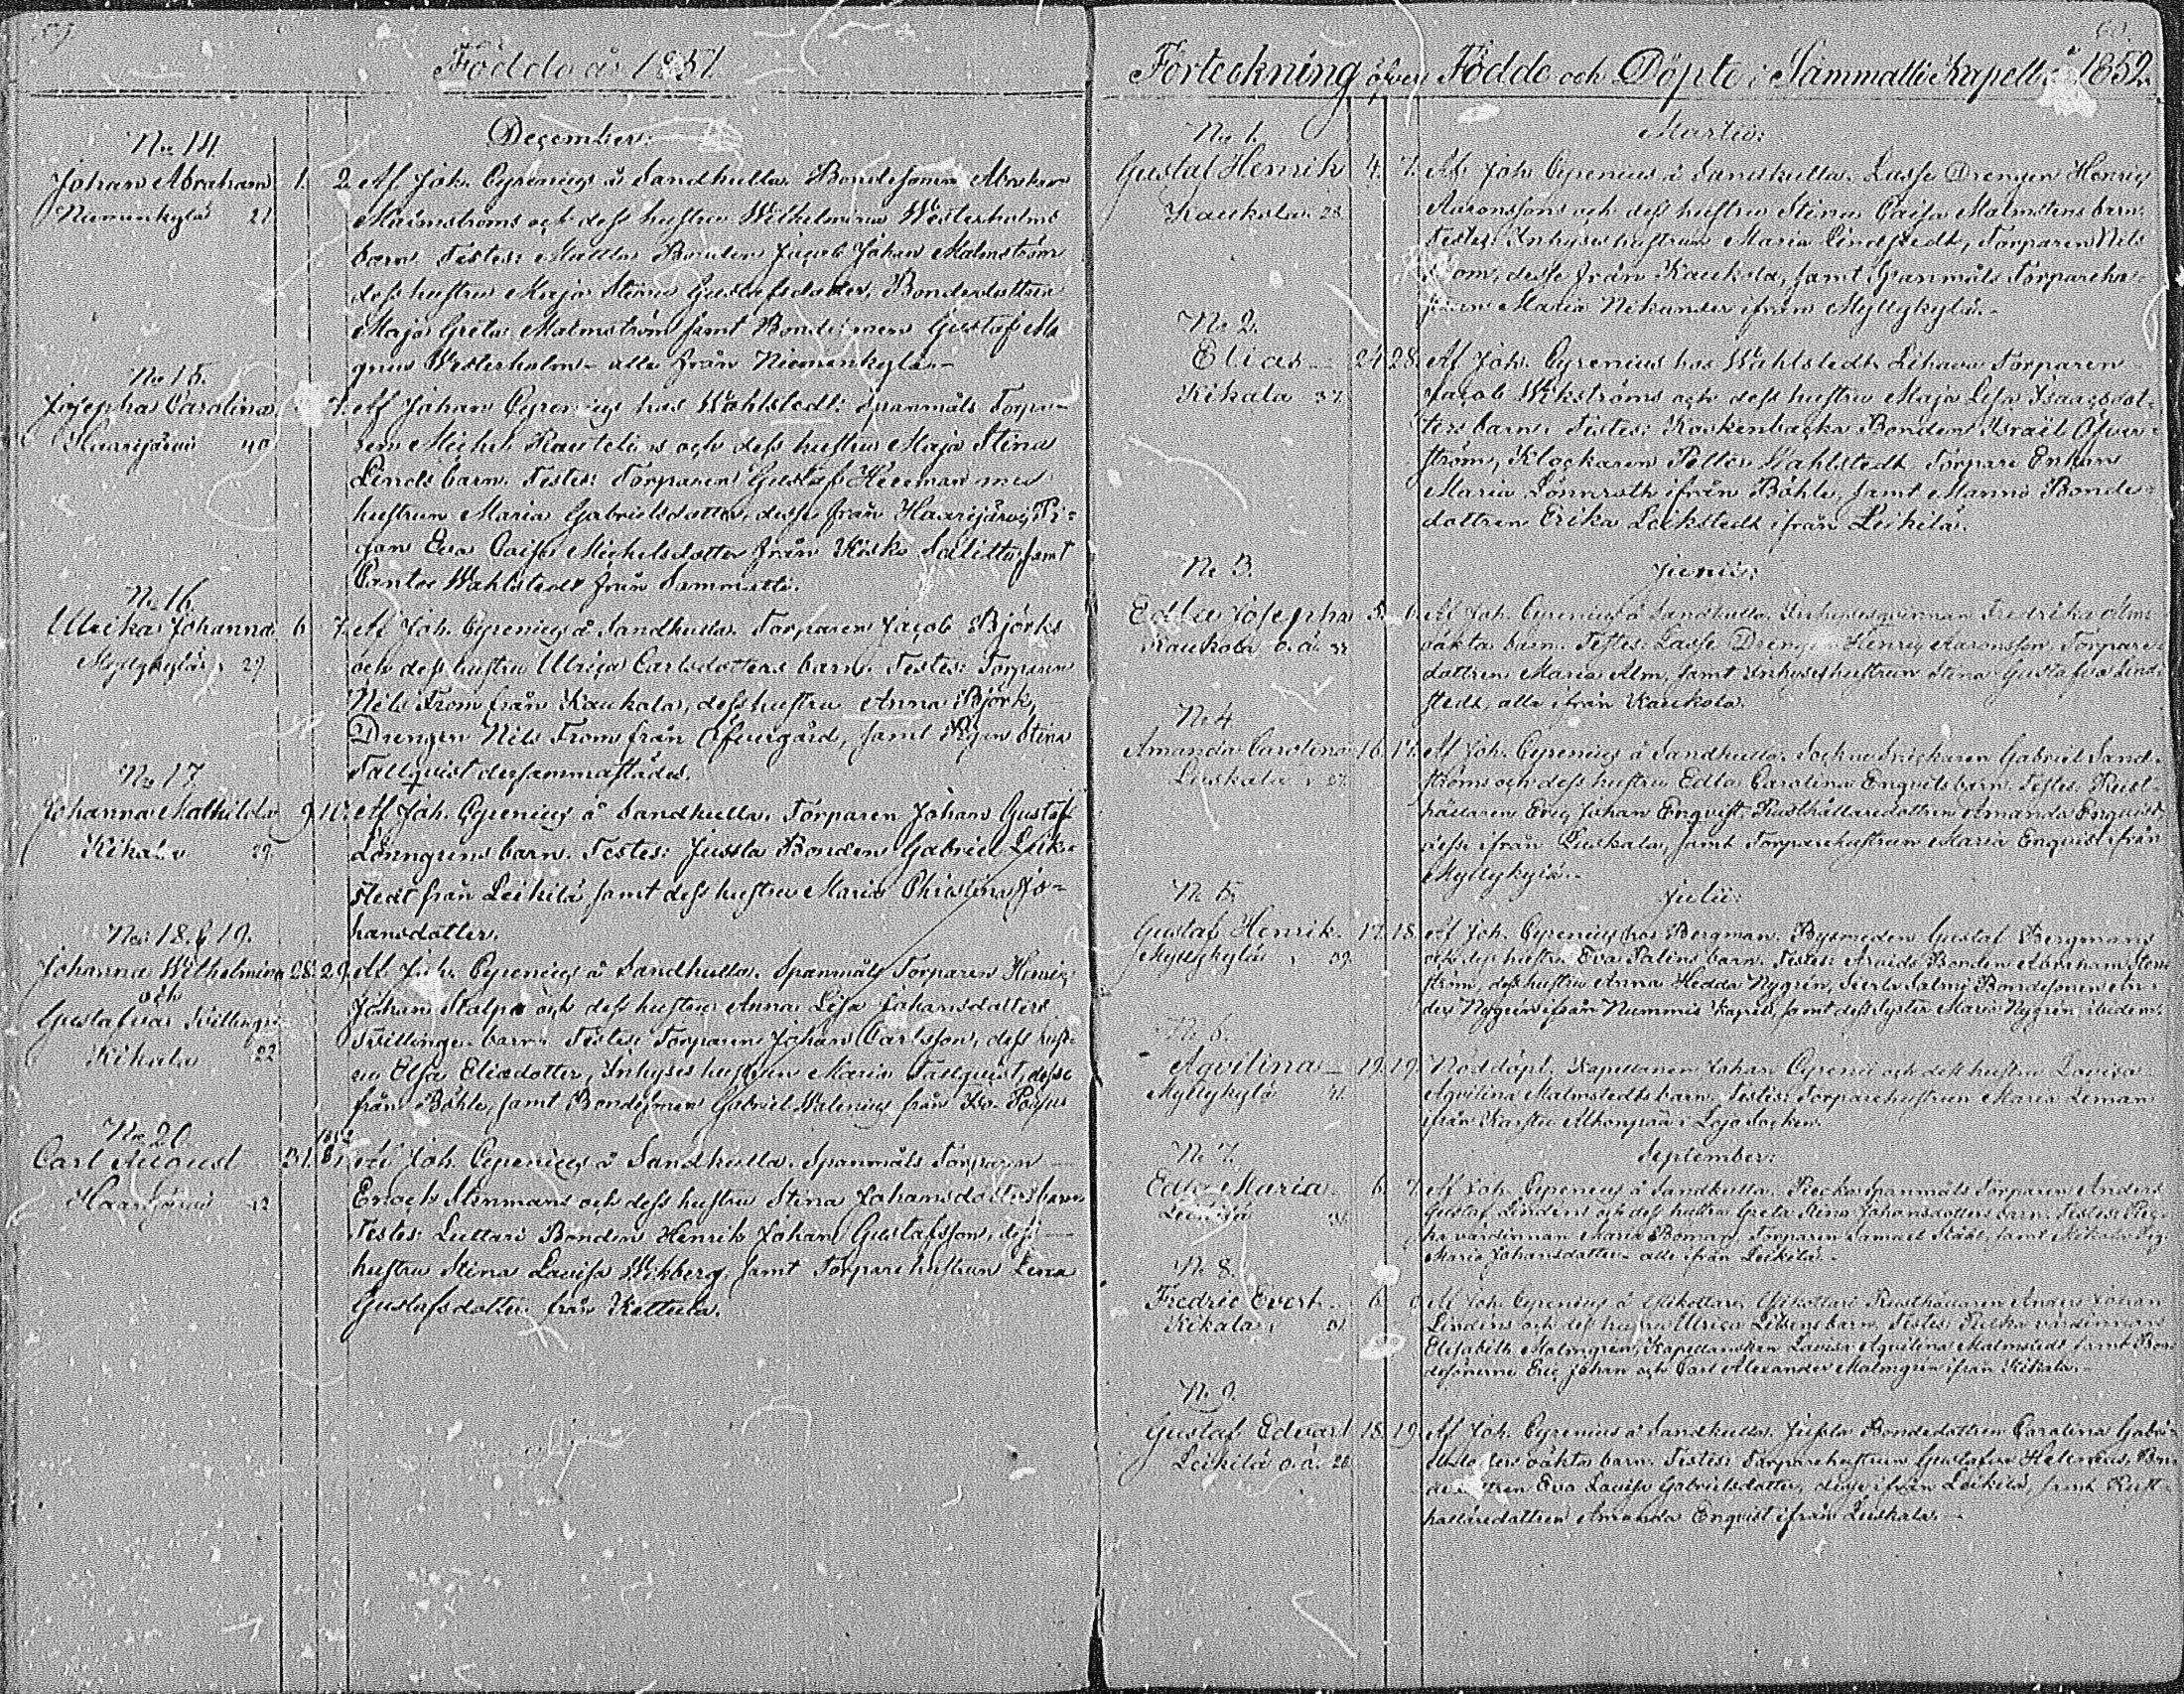 59
Födde år 1851
December:
No 14.
Johan Abraham 1. 2. Af Joh. Cyrenius å Sandkulla. Bondesonen Abraham
Niemenkylä 21 Malmströms och dess hustru Wilhelmina Westerholms
barn. Testes: Bonden Jacob Johan Malmström
dess hustru Maja Stina Gustafsdotter, Bondedottren
Maja Greta Malmström samt Bondesonen Gustaf Ma
gnus Westerholm – alla från Niemenkylä. –
No 15.
Josepha Carolina 7. Af Johan Cyrenius hos Wahlstedt: Spanmåls Torpa-
Haarijärvi 40 ren Michel Rautelius och dess hustru Maja Stina
Linds barn. Testes: Torparen Gustaf Heerman med
hustrun Maria Gabrielsdotter, desse från Haarijärvi, Pi-
gan Eva Caisa Michelsdotter från Koski Salittu samt
Cantor Wahlstedt från Sammatti.
No 16.
Ulrika Johanna 6. 7. Af Joh. Cyrenius å Sandkulla. Torparen Jacob Björks
Myllykylä 29 och dess hustru Ulrica Carlsdotters barn. Testes: Torparen
Nils From från Kaukola, dess hustru Anna Björk,
Drengen Nils From från Öfvergård, samt Pigan Stina
Tallqvist dersammastädes.
No 17.
Johanna Mathilda 9. 11. Af Joh. Cyrenius å Sandkulla. Torparen Johan Gustaf
Kikala 29. Lönngrens barn. Testes: Jussla Bonden Gabriel Leik-
stedt från Leikilä, samt dess hustru Maria Christina Jo-
hansdotter.
No: 18. & 19.
Johanna Wilhelmina 28. 29. Af Joh. Cyrenius å Sandkulla. Spanmåls Torparen Henric
och Johan Stalpe och dess hustru Anna Lisa Johansdotters
Gustafva Tvillingar Tvillinge barn. Testes: Torparen Johan Carlsson, dess hust-
Kikala 22 ru Elsa Eliedotter, Inhyses hustrun Maria Tallqvist, desse
från Böhle, samt Bondesonen Gabriel Walenius från
No 20.
1852
Carl August 31. Af Joh. Cyrenius å Sandkulla. Spanmåls Torparen
Haarijärvi 42 Enoch Stenmans och dess hustru Stina Johansdotters barn
Testes: Luttari Bonden Henrik Johan Gustafsson, dess
hustru Stina Lovisa Wikberg, samt Torparehustrun Lena
Gustafsdotter från Kattula.
60
Förteckning öfver Födde och Döpte i Sammatti Kapell år 1852.
Martii:
No 1.
Gustaf Henrik 4. 7. Af Joh. Cyrenius å Sandkulla. Lasse Drengen Henric
Kaukola 28 Aaronssons och dess hustru Stina Caisa Malmstens barn.
Testes: Inhyseshustrun Maria Lindstedt, Torparen Nils
From, desse från Kaukola, samt Spanmåls Torparehu-
strun Maria Nikander ifrån Myllykylä. –
No 2.
Elias 24 28. Af Joh. Cyrenius hos Wahlstedt. Torparen
Kikala 37. Jacob Wikströms och dess hustru Maja Lisa Isaacsdot-
ters barn. Testes: Koskenbacka Bonden Israël Öfver-
ström, Klockaren Petter Wahlstedt, Torpare Enkan
Maria Lönnroth ifrån Böhle, samt Manni Bonde-
dottren Erika Leikstedt ifrån Leikilä.
No 3.
Junii:
Edla Josepha 5. 6. Af Joh. Cyrenius å Sandkulla. Inhysesqvinnan Fredrika Alms
Kaukola o.ä. oäkta barn. Testes: Lasse Drengen Henric Aaronsson, Torpare-
dottren Maria Alm, samt Inhyseshustrun Stina Gustafva Lind-
stedt, alla ifrån Kaukola.
No 4.
Amanda Carolina 16. 17. Af Joh. Cyrenius å Sandkulla. Sockne Snickaren Gabriel Sand-
Luskala 27. ströms och dess hustru Edla Carolina Enqvists barn. Testes: Rust-
hållaren Eric Johan Enqvist, Rusthållaredottren Amanda Enqvist,
desse ifrån Luskala, samt Torparehustrun Maria Enqvist ifrån
Myllykylä. –
No 5.
Julii:
Gustaf Henrik 17. 18. Af Joh. Cyrenius hos Bergman. Bysmeden Gustaf Bergmans
Myllykylä 39. och dess hustru Eva Palins barn. Testes: Bonden Abraham
ström, dess hustru Anna Hedda Nygrén, Salmi Bondesonen An-
ders Nygrén ifrån Nummis Kapell, samt dess syster Maria Nygrén ibidem.
No 6.
Aqvilina 19. 19. Nöddöpt. Kapellanen Johan Cyrenii och dess hustru Lovisa
Myllykylä Aqvilina Malmstedts barn. Testes: Torparehustrun Maria Leman
ifrån i Lojo Socken.
No 7.
September:
Edla Maria 6. 7. Af Joh. Cyrenius å Sandkulla. Spanmåls Torparen Anders
Leikilä Gustaf Lindéns och dess hustru Greta Stina Johansdotters barn. Testes:
värdinnan Maria Boman, Torparen Samuel samt
Maria Johansdotter – alla ifrån Leikilä. –
No 8.
Fredric Evert 6. Af Joh. Cyrenius å Rusthållaren Anders Johan
Kikala Lindéns och dess hustru Ulrica barn. Testes: värdinnan
Elisabeth Malmgrén, Kapellanskan Lovisa Aqvilina Malmstedt samt Bon-
desönerne Eric Johan och Carl Alexander Malmgrén ifrån Kikala. –
No 9.
Gustaf Edvart 18. 19. Af Joh. Cyrenius å Sandkulla. Jussla Bondedottren Carolina Gabri-
Leikilä o.ä. oäkta barn. Testes: Torparehustrun Gustafva Helenius, Bon-
dedottren Eva Lovisa Gabrielsdotter, desse ifrån Leikilä, samt Rust-
hållaredottren Amanda Enqvist ifrån Luskala. –